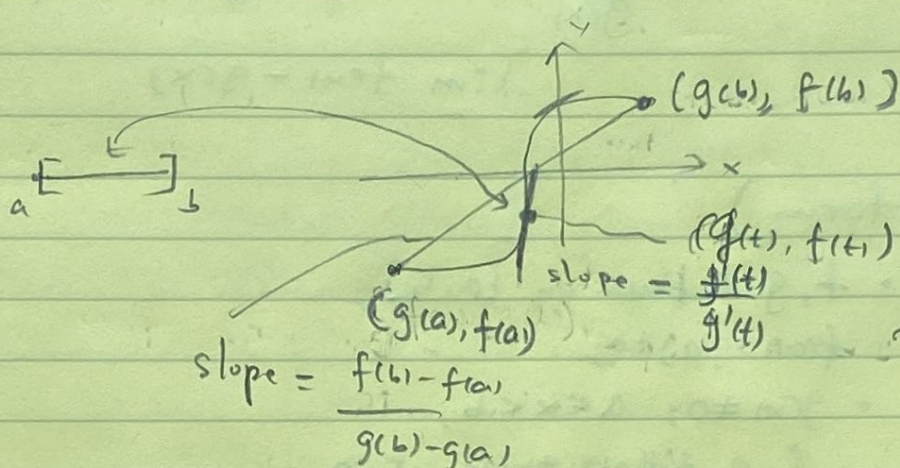 y
(g(b), f(b))
x
a b
(g(t), f(t))
slope = f'(t)/g'(t)
(g(a), f(a))
slope = f(b)-f(a)/g(b)-g(a)